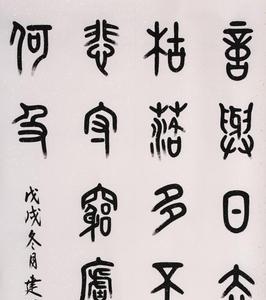 意與日去
枯落多不
悲守窮廬
何及
戊戌冬月建